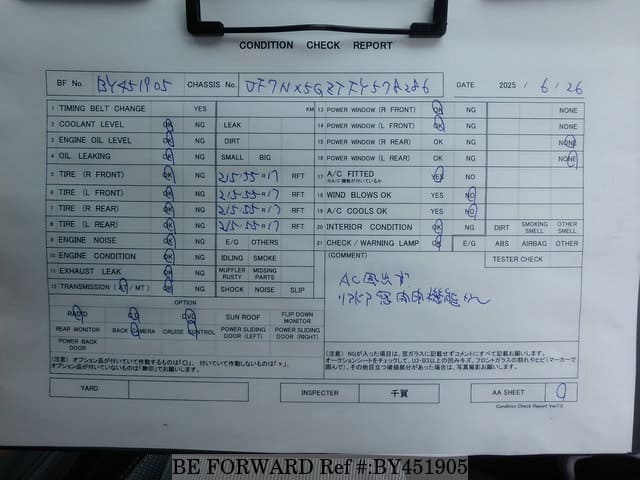 CONDITION CHECK REPORT
BF No. BY451905 CHASSIS No. DATE 2025 / 6 / 26
1 TIMING BELT CHANGE YES KM
2 COOLANT LEVEL OK NG LEAK
3 ENGINE OIL LEVEL OK NG DIRT
4 OIL LEAKING OK NG SMALL BIG
5 TIRE (R FRONT) OK NG 215-55R17 RFT
6 TIRE (L FRONT) OK NG 215-55R17 RFT
7 TIRE (R REAR) OK NG 215-55R17 RFT
8 TIRE (L REAR) OK NG 215-55R17 RFT
9 ENGINE NOISE OK NG E/G OTHERS
10 ENGINE CONDITION OK NG IDLING SMOKE
11 EXHAUST LEAK OK NG MUFFLER RUSTY MISSING PARTS
12 TRANSMISSION (AT / MT) OK NG SHOCK NOISE SLIP
OPTION
RADIO CD DVD SUN ROOF FLIP DOWN MONITOR
REAR MONITOR BACK CAMERA CRUISE CONTROL POWER SLIDING DOOR (LEFT) POWER SLIDING DOOR (RIGHT)
POWER BACK DOOR
(注意) オプション品が付いていて作動するものは「○」、付いていて作動しないものは「×」、
オプション品が付いていないものは「無印」でお願いします。
13 POWER WINDOW (R FRONT) OK NG NONE
14 POWER WINDOW (L FRONT) OK NG NONE
15 POWER WINDOW (R REAR) OK NG NONE
16 POWER WINDOW (L REAR) OK NG NONE
17 A/C FITTED YES NO
※A/C機能が付いているか
18 WIND BLOWS OK YES NO
19 A/C COOLS OK YES NO
20 INTERIOR CONDITION OK NG DIRT SMOKING SMELL OTHER SMELL
21 CHECK / WARNING LAMP OK E/G ABS AIRBAG OTHER
(COMMENT) TESTER CHECK
AC風出ず
(注意) NGが入った項目は、窓ガラスに記載せずコメントにすべて記載お願いします。
オークションシートをチェックして、U3・B3以上の凹みキズ、フロントガラスの割れやヒビ(マーカーで
囲んで)、その他目立つ破損部分があった場合は、写真撮影お願いします。
YARD INSPECTER 千賀 AA SHEET
Condition Check Report Ver.7.0
BE FORWARD Ref #:BY451905